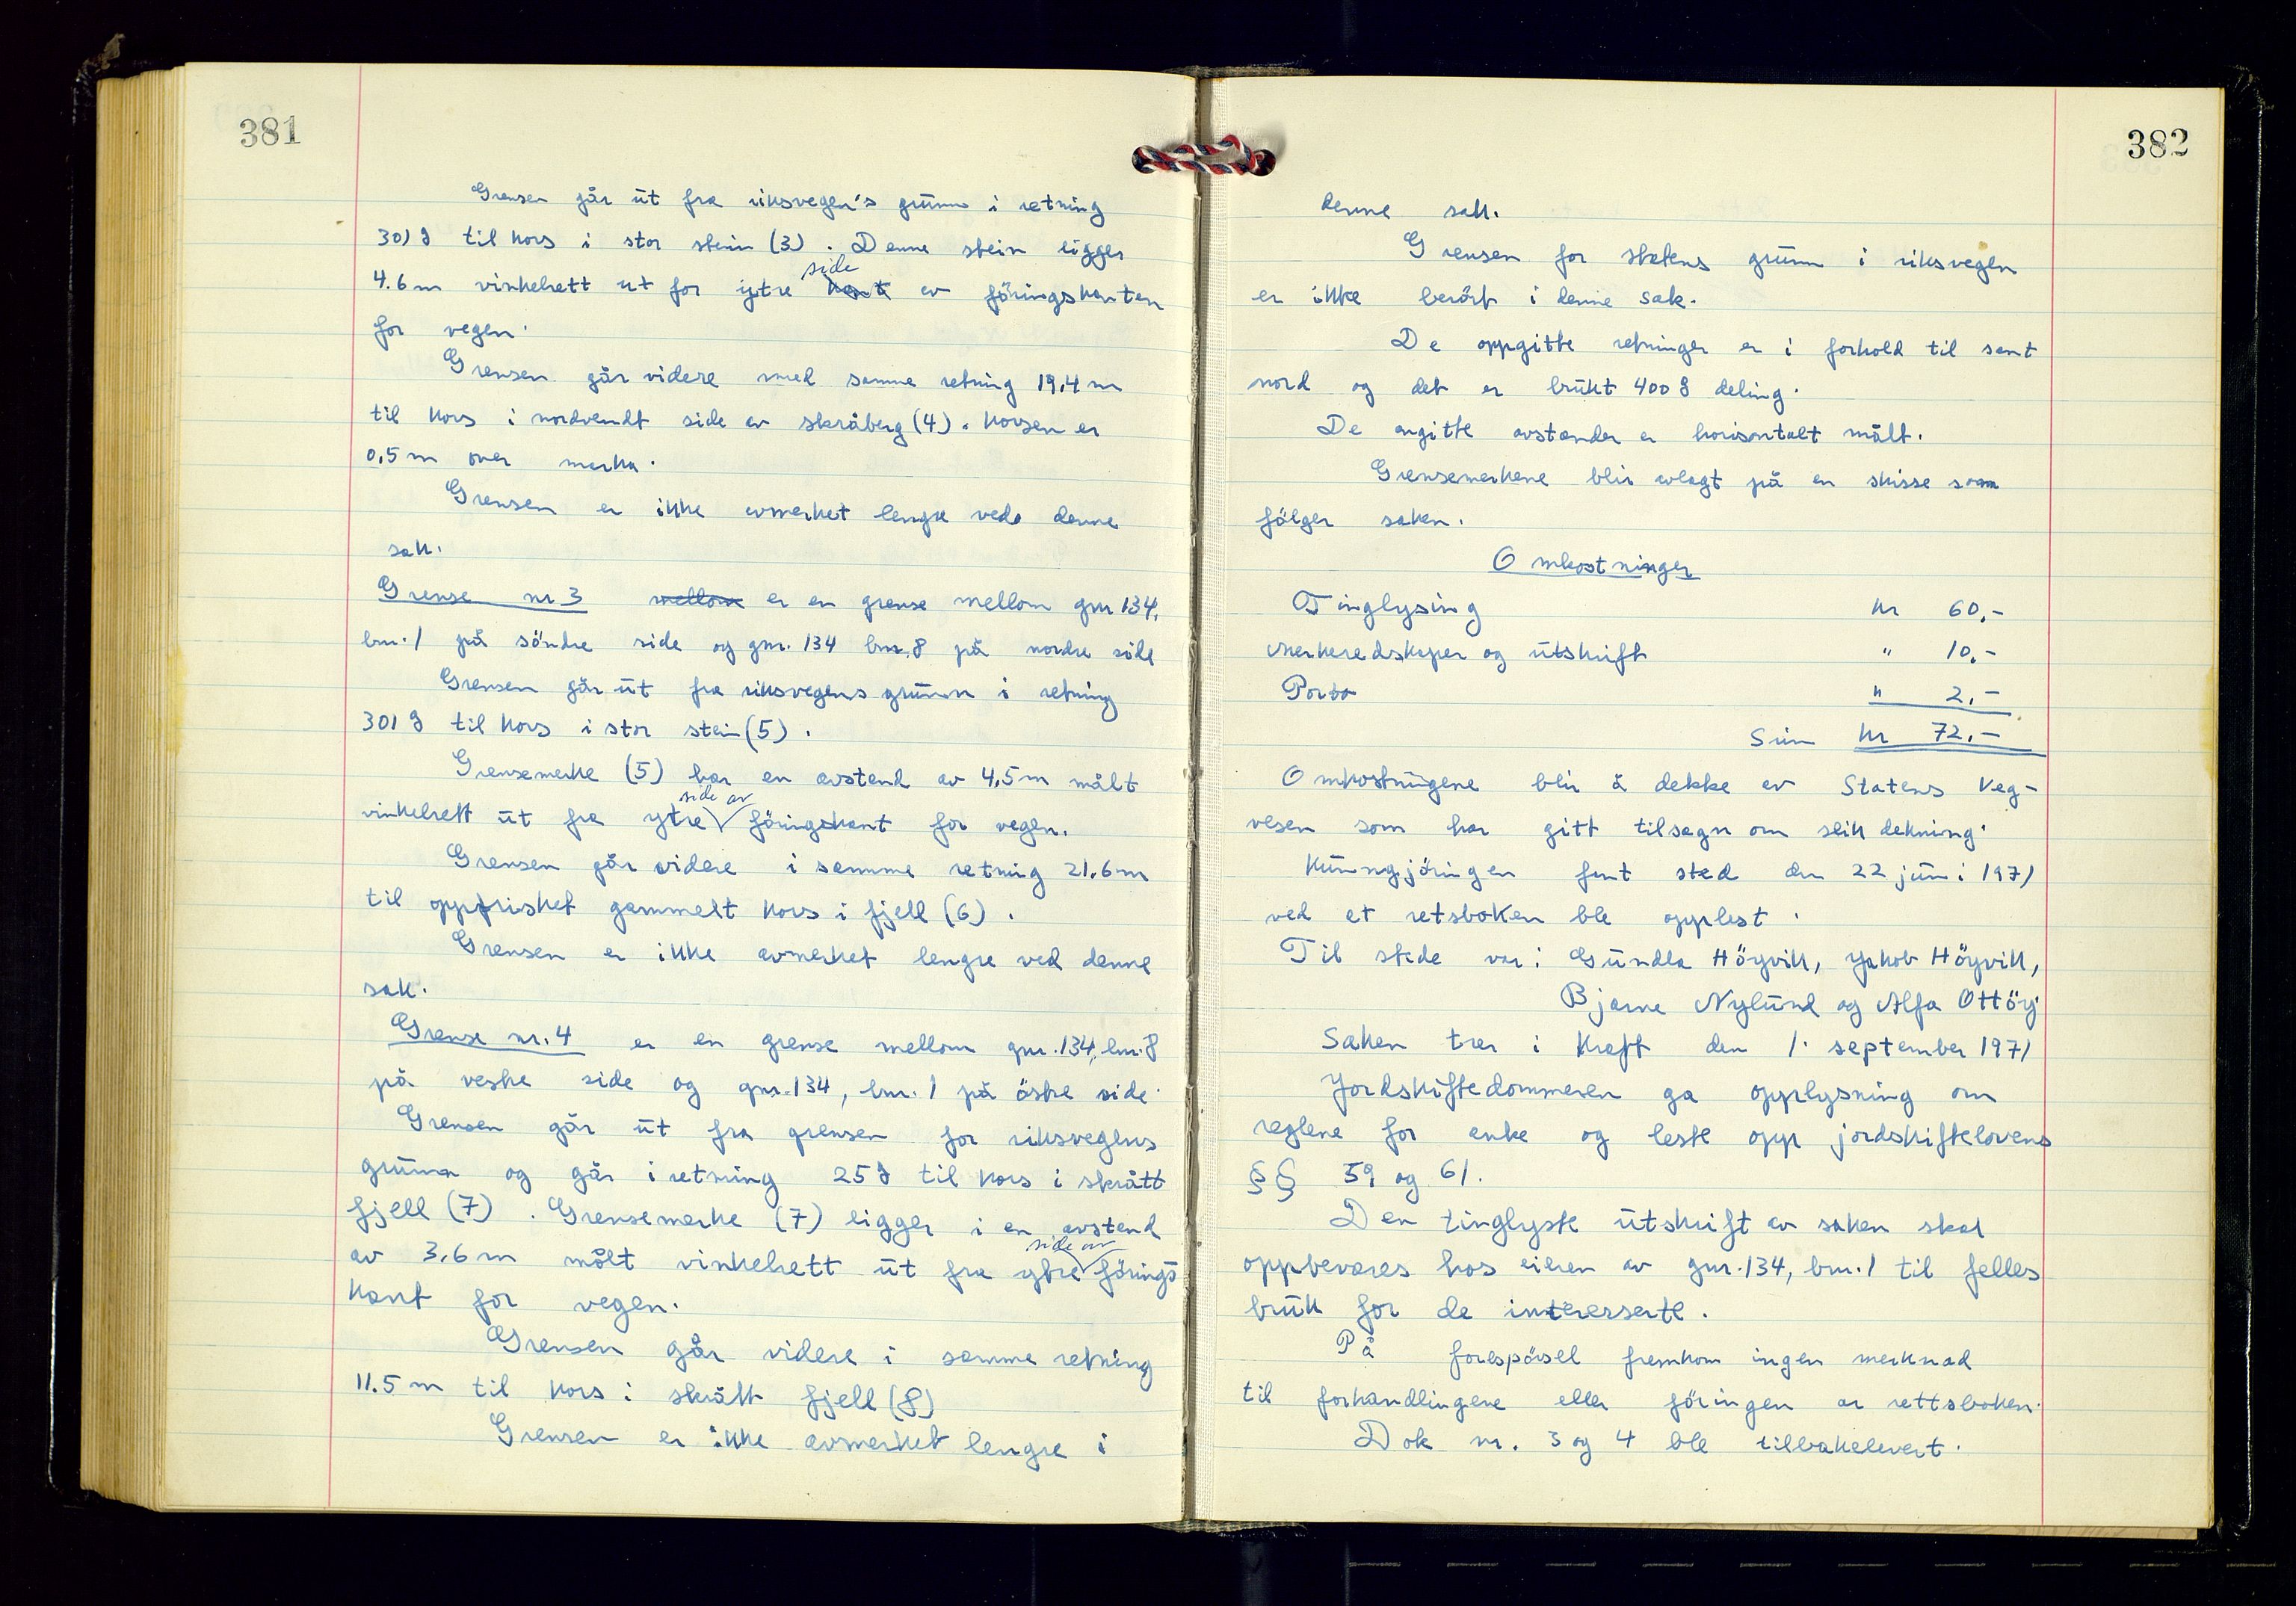 381
Grensen går ut fra riksvegen's grunn i retning
301 g til kors i stor stein (3). Denne stein ligger
4.6 m vinkelrett ut for ytre kant side av föringskanten
for vegen.
Grensen går videre med samme retning 19,4 m
til kors i nordvendt side av skråberg (4). Korsen er
0,5 m over marka.
Grensen er ikke avmerket lengre ved denne
sak.
Grense nr 3 mellom er en grense mellom gnr 134,
bnr. 1 på söndre side og gnr. 134 bnr. 8 på nordre side
Grensen går ut fra riksvegens grunn i retning
301 g til kors i stor stein (5).
Grensemerke (5) har en avstand av 4,5 m målt
vinkelrett ut fra ytre side av föringskant for vegen.
Grensen går videre i samme retning 21,6 m
til oppfrisket gammelt kors i fjell (6).
Grensen er ikke avmerket lengre ved denne
sak.
Grense nr. 4 er en grense mellom gnr. 134, bnr. 8
på veste side og gnr. 134, bnr. 1 på öste side.
Grensen går ut fra grensen for riksvegens
grunn og går i retning 25 g til kors i skrått
fjell (7). Grensemerke (7) ligger i en avstand
av 3,6 m målt vinkelrett ut fra ytre side av förings
kant for vegen.
Grensen går videre i samme retning
11.5 m til kors i skrått fjell (8)
Grensen er ikke avmerket lengre i
382
denne sak.
Grensen for statens grunn i riksvegen
er ikke berört i denne sak.
De oppgitte retninger er i forhold til sant
nord og det er brukt 400 g deling.
De angitte avstander er horisontalt målt.
Grensemerkene blir avlagt på en skisse som
fölger saken.
Omkostninger
Tinglysing kr 60,-
Merkeredskaper og utskrift " 10,-
Porto " 2,-
Sum kr 72,-
Omkostningene blir å dekke av Statens Veg-
vesen som har gitt tilsagn om slik dekning.
Kunngjöringen fant sted den 22 juni 1971
ved at retsboken ble opplest.
Til stede var: Gundla Höyvik, Jakob Höyvik,
Bjarne Nylund og Alfa Ottöy
Saken trer i kraft den 1. september 1971
Jordskiftedommeren ga opplysning om
reglene for anke og leste opp jordskiftelovens
§§ 59 og 61.
Den tinglyste utskrift av saken skal
oppbevares hos eieren av gnr. 134, bnr. 1 til felles
bruk for de interesserte.
På forespörsel fremkom ingen merknad
til forhandlingene eller föringen av rettsboken.
Dok nr. 3 og 4 ble tilbakelevert.